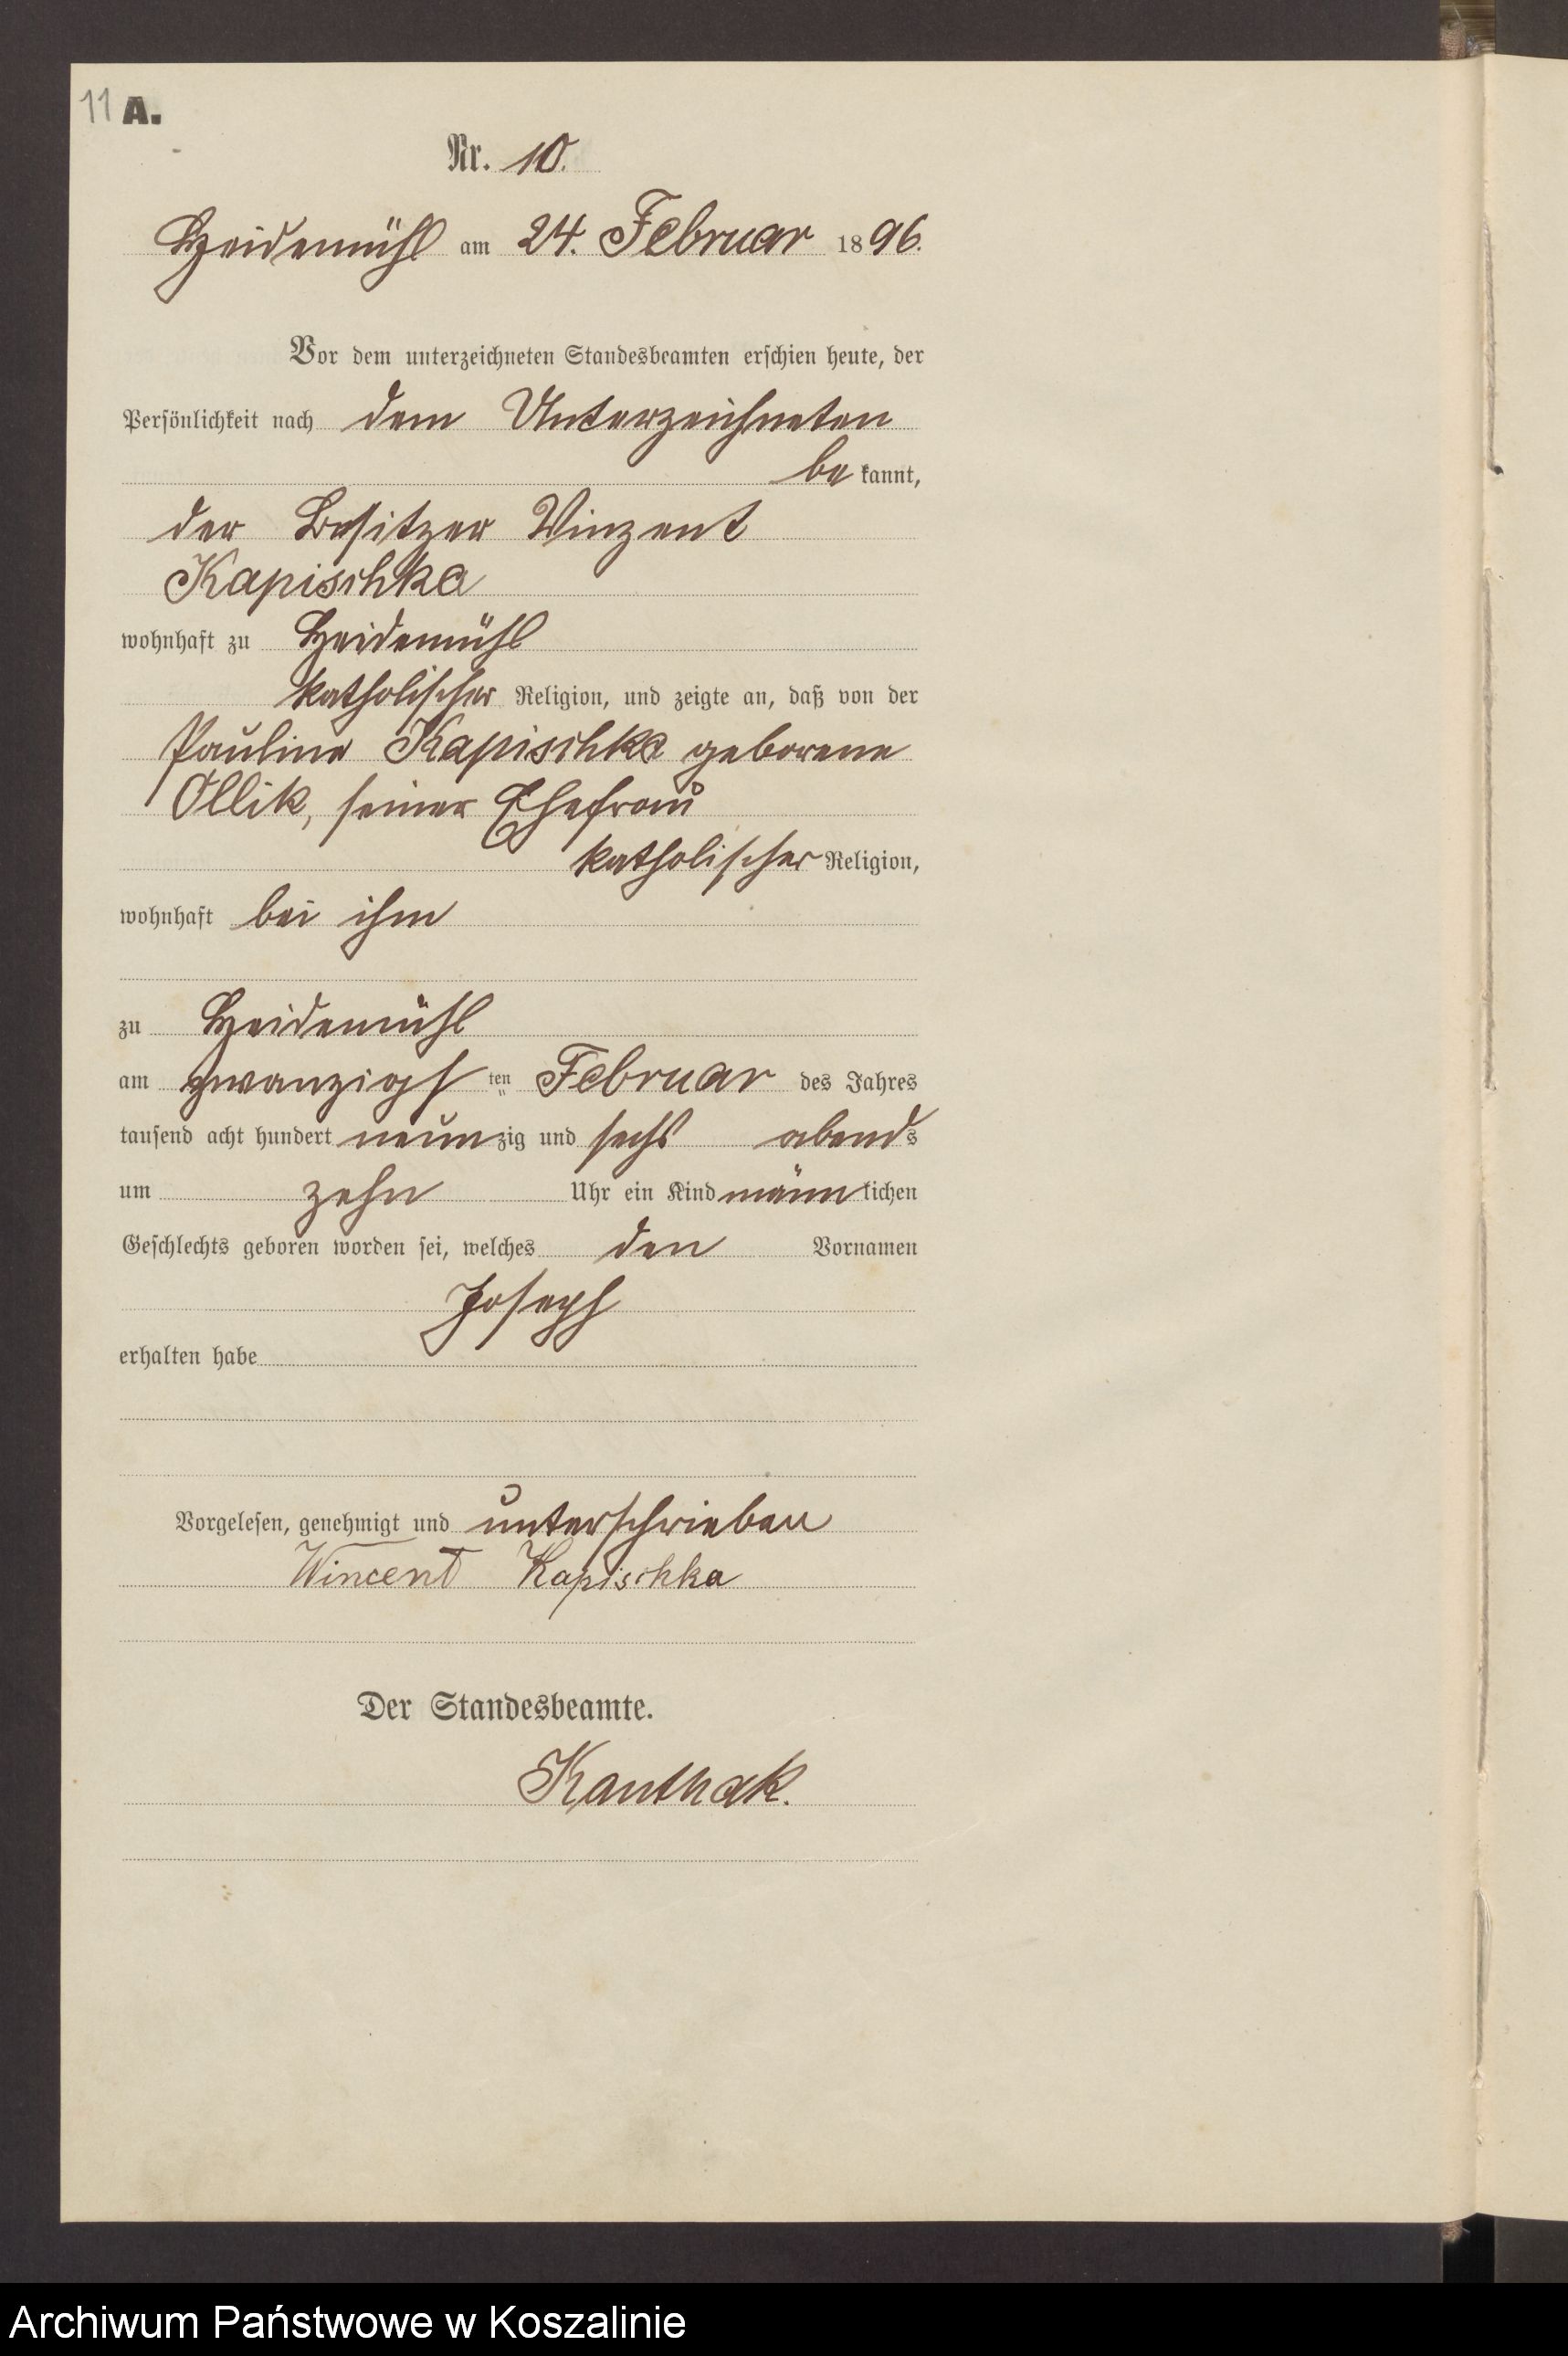 11 A.
Nr. 10.
Heidemühl am 24. Februar 1896.
Vor dem unterzeichneten Standesbeamten erschien heute, der
Persönlichkeit nach dem Unterzeichneten
be kannt,
der Besitzer Vinzent
Kapischka
wohnhaft zu Heidemühl
katholischer Religion, und zeigte an, daß von der
Pauline Kapischka geborene
Ollik, seiner Ehefrau
katholischer Religion,
wohnhaft bei ihm
zu Heidemühl
am zwanzigsten Februar des Jahres
tausend acht hundert neunzig und sechs abends
um zehn Uhr ein Kind männlichen
Geschlechts geboren worden sei, welches den Vornamen
Joseph
erhalten habe
Vorgelesen, genehmigt und unterschrieben
Wincent Kapischka
Der Standesbeamte.
Kanthak.
Archiwum Państwowe w Koszalinie